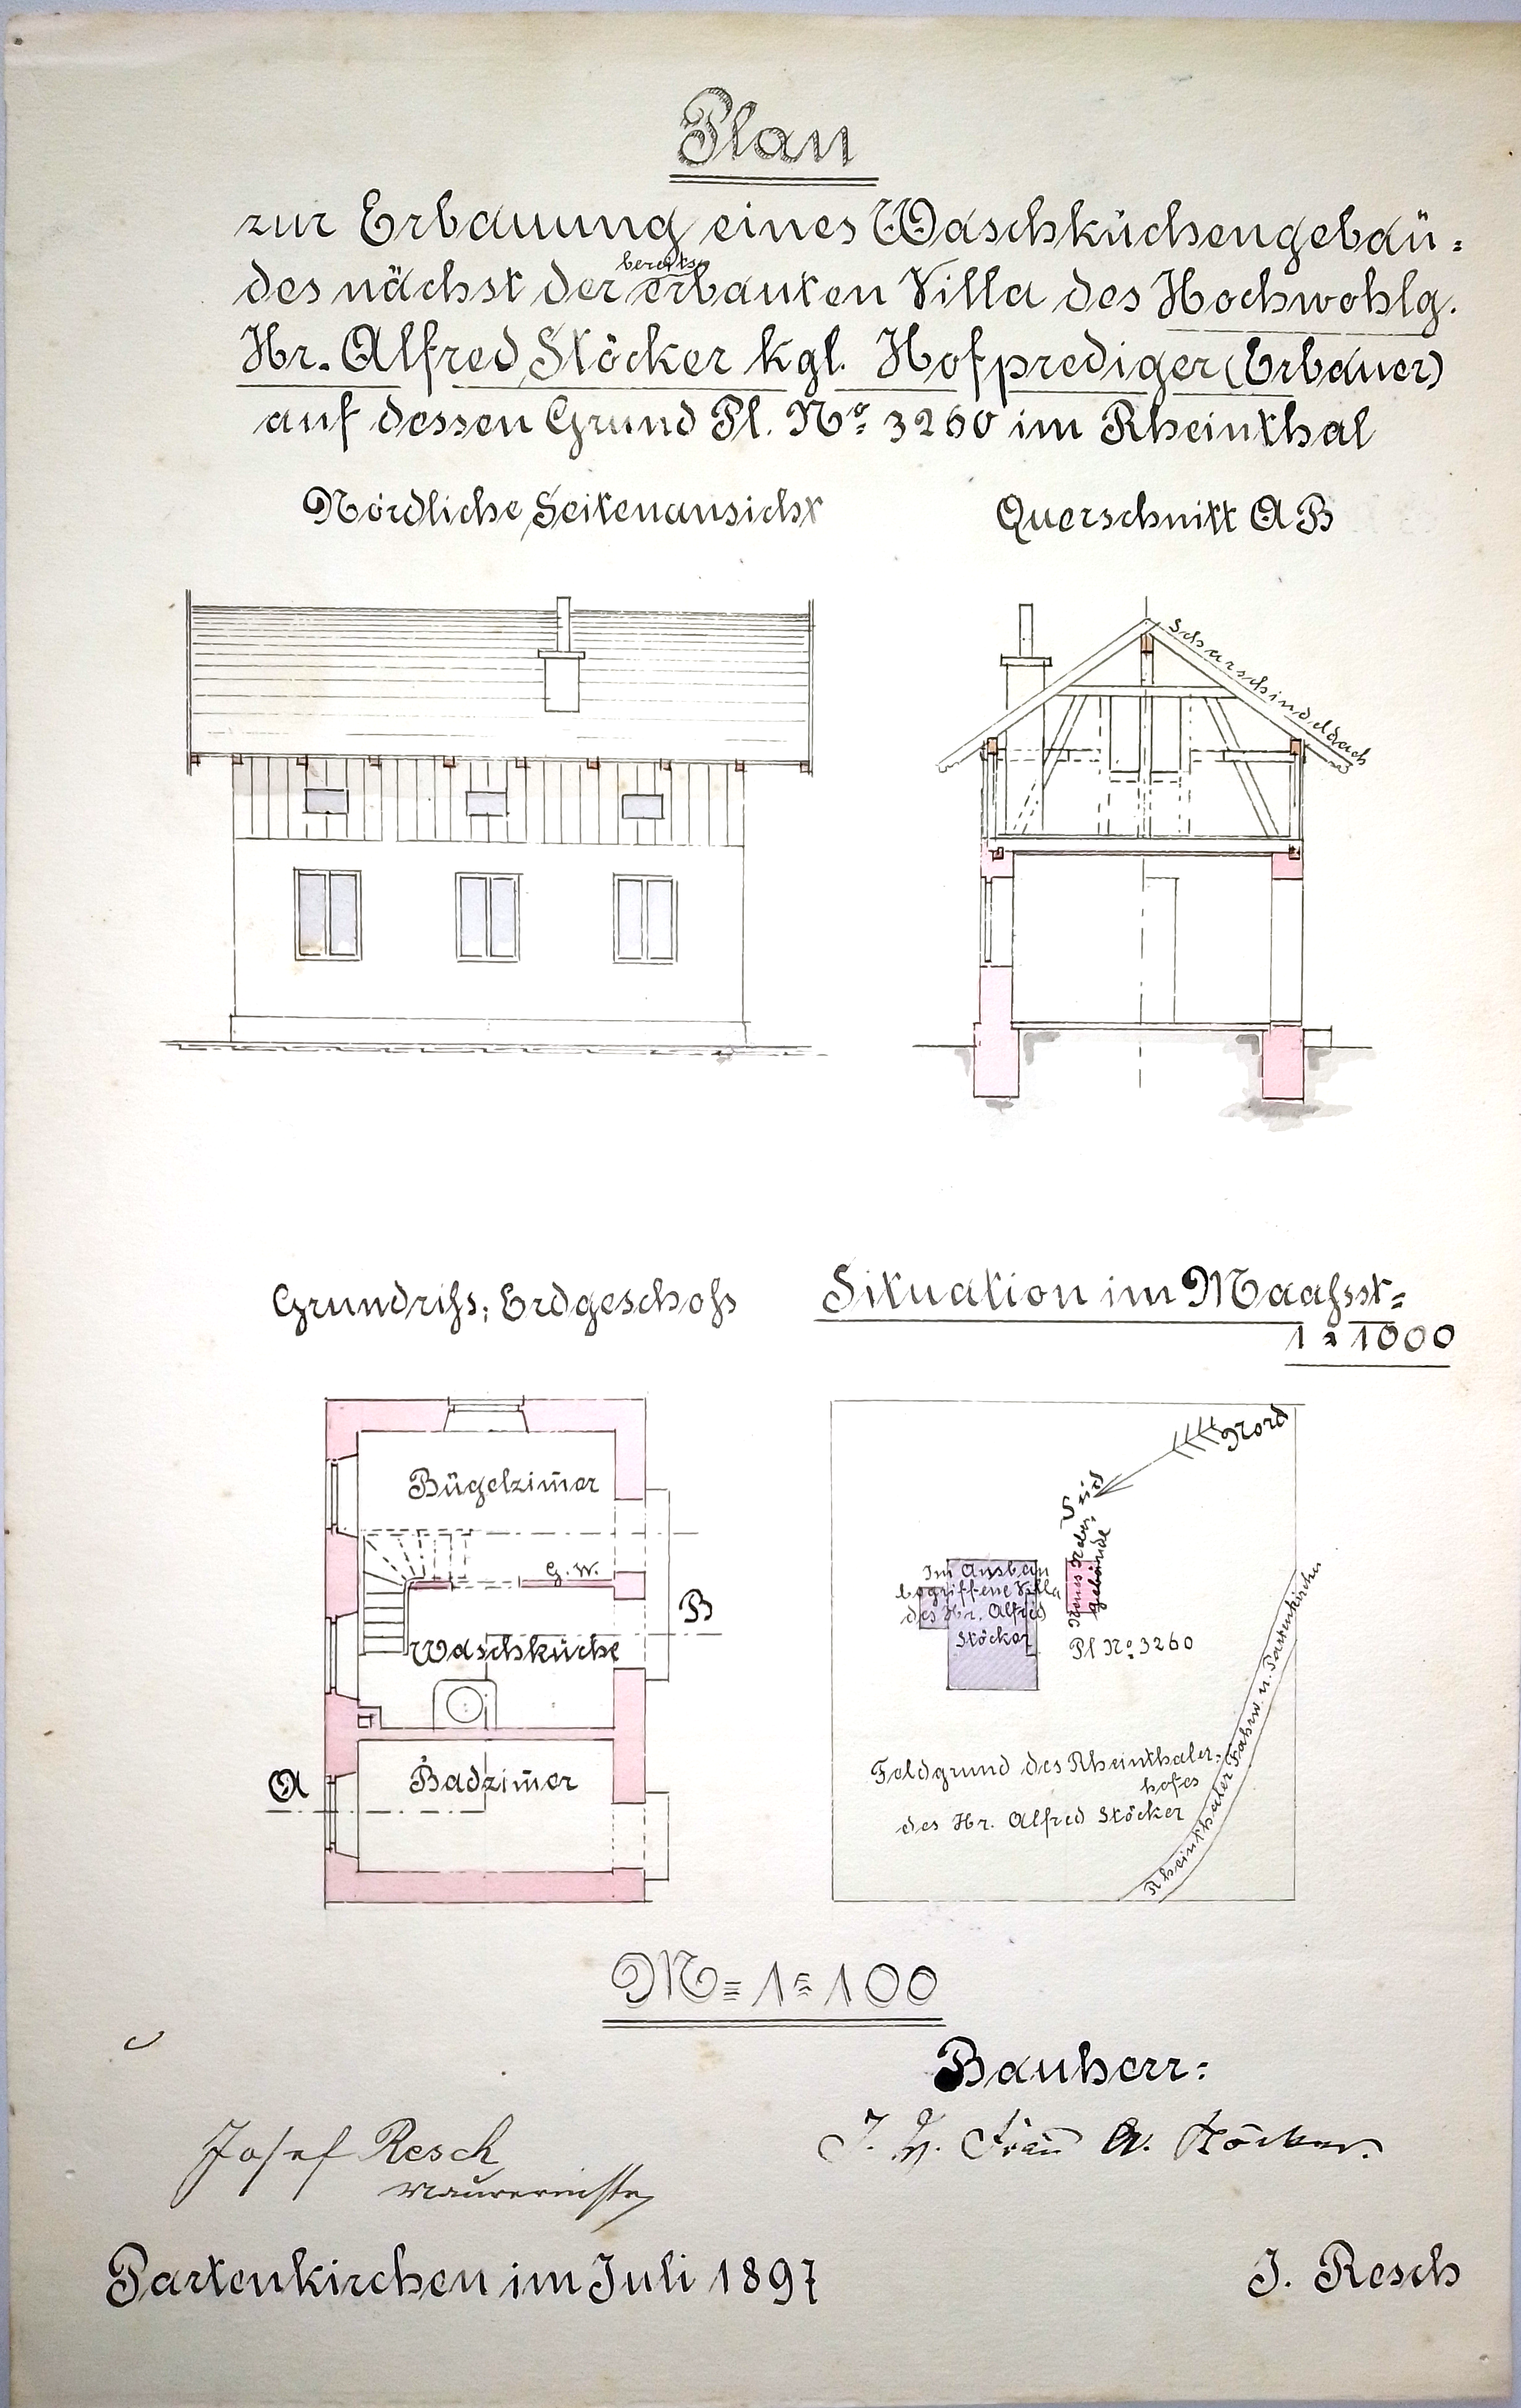 Plan
zur Erbauung eines Waschküchengebäu=
des nächst der bereits erbauten Villa des Hochwohlg.
Hr. Alfred Stöcker kgl. Hofprediger (Erbauer)
auf dessen Grund Pl. No. 3260 im Rheinthal
Nördliche Seitenansicht
Querschnitt A B
Scharschindeldach
Grundriſs; Erdgeschoſs
Situation im Maaſsst=
1 = 1000
Bügelzim̄er
G. W.
Waschküche
B
Badzim̄er
A
Nord
Süd
Im Ausbau
begriffene Villa
des Hr. Alfred
Stöcker
gebäude
Pl No. 3260
Feldgrund des Rheinthaler=
hofes
des Hr. Alfred Stöcker
Rheinthaler Fahrw. n. Partenkirchen
M = 1 = 100
Bauherr:
Josef Resch
Maurermstr
A. Stöcker.
Partenkirchen im Juli 1897
J. Resch